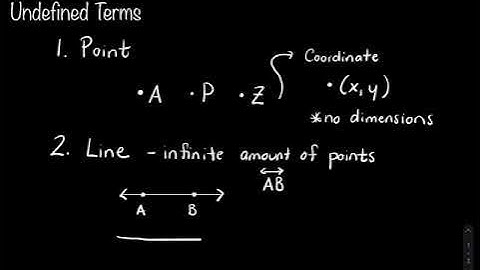 Undefined Terms
1. Point
Coordinate
• A • P • Z • (x, y)
*no dimensions
2. Line - infinite amount of points
AB
A B